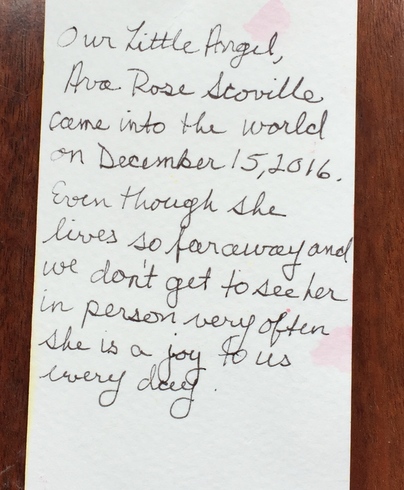 Our Little Angel,
Ava Rose Scoville
came into the world
on December 15, 2016.
Even though she
lives so faraway and
we don't get to see her
in person very often
she is a joy to us
every day.